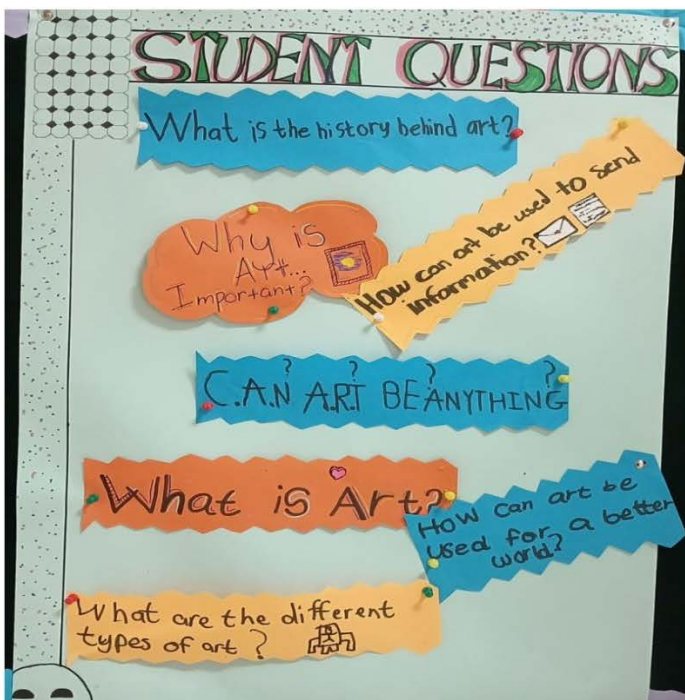 STUDENT QUESTIONS
What is the history behind art?
How can art be used to send
information?
Why is
Art...
Important?
? ? ? ?
C.A.N A.R.T BE ANYTHING
What is Art?
How can art be
used for a better
world?
What are the different
types of art?